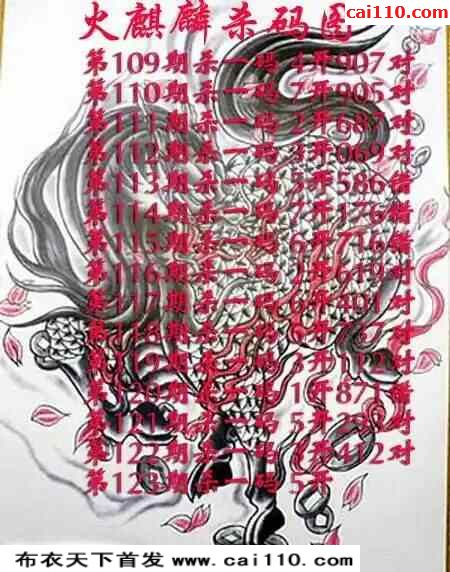 cai110.com
火麒麟杀码图
第109期杀一码 4开907对
第110期杀一码 7开905对
第111期杀一码 2开687对
第112期杀一码 3开069对
第113期杀一码 5开586错
第114期杀一码 7开176错
第115期杀一码 6开716错
第116期杀一码 开619对
第117期杀一码 开401对
第118期杀一码 开 对
第119期杀一码 3开112对
第120期杀一码 1开871错
第121期杀一码 5开 对
第122期杀一码 开412对
第123期杀一码 5开
布衣天下首发 www.cai110.com